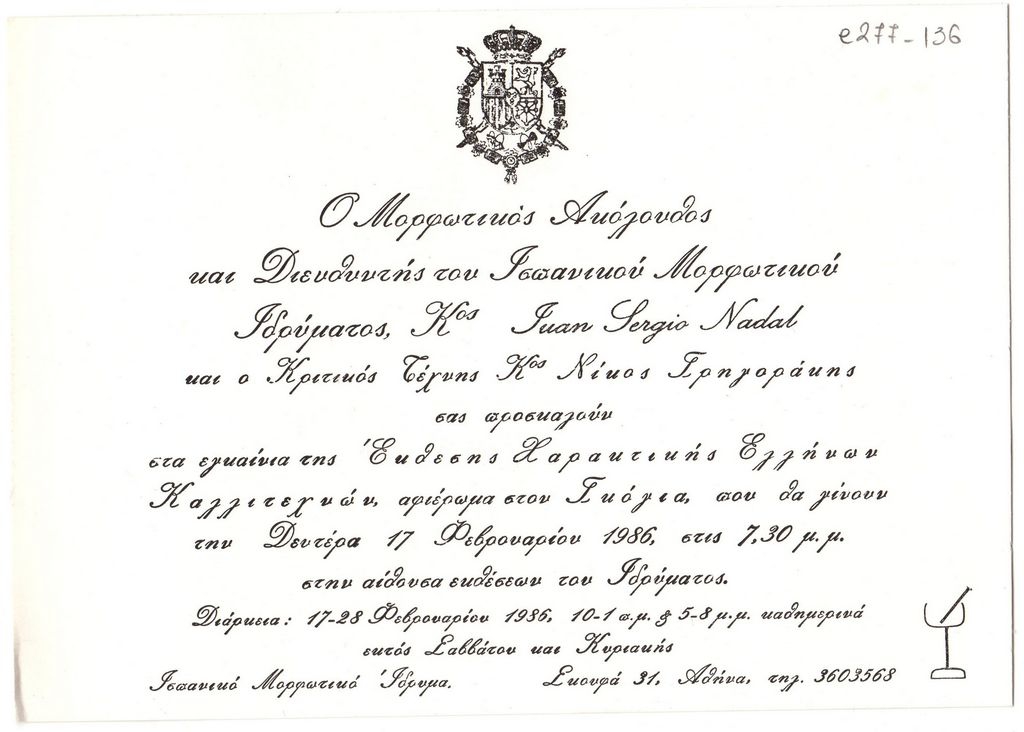 e277-136
Ο Μορφωτικός Ακόλουθος
και Διευθυντής του Ισπανικού Μορφωτικού
Ιδρύματος, Κος Juan Sergio Nadal
και ο Κριτικός Τέχνης Κος Νίκος Γρηγοράκης
σας προσκαλούν
στα εγκαίνια της Έκθεσης Χαρακτικής Ελλήνων
Καλλιτεχνών, αφιέρωμα στον Γκόγια, που θα γίνουν
την Δευτέρα 17 Φεβρουαρίου 1986, στις 7,30 μ.μ.
στην αίθουσα εκθέσεων του Ιδρύματος.
Διάρκεια: 17-28 Φεβρουαρίου 1986, 10-1 π.μ. & 5-8 μ.μ. καθημερινά
εκτός Σαββάτου και Κυριακής
Ισπανικό Μορφωτικό Ίδρυμα. Σκουφά 31, Αθήνα, τηλ. 3603568